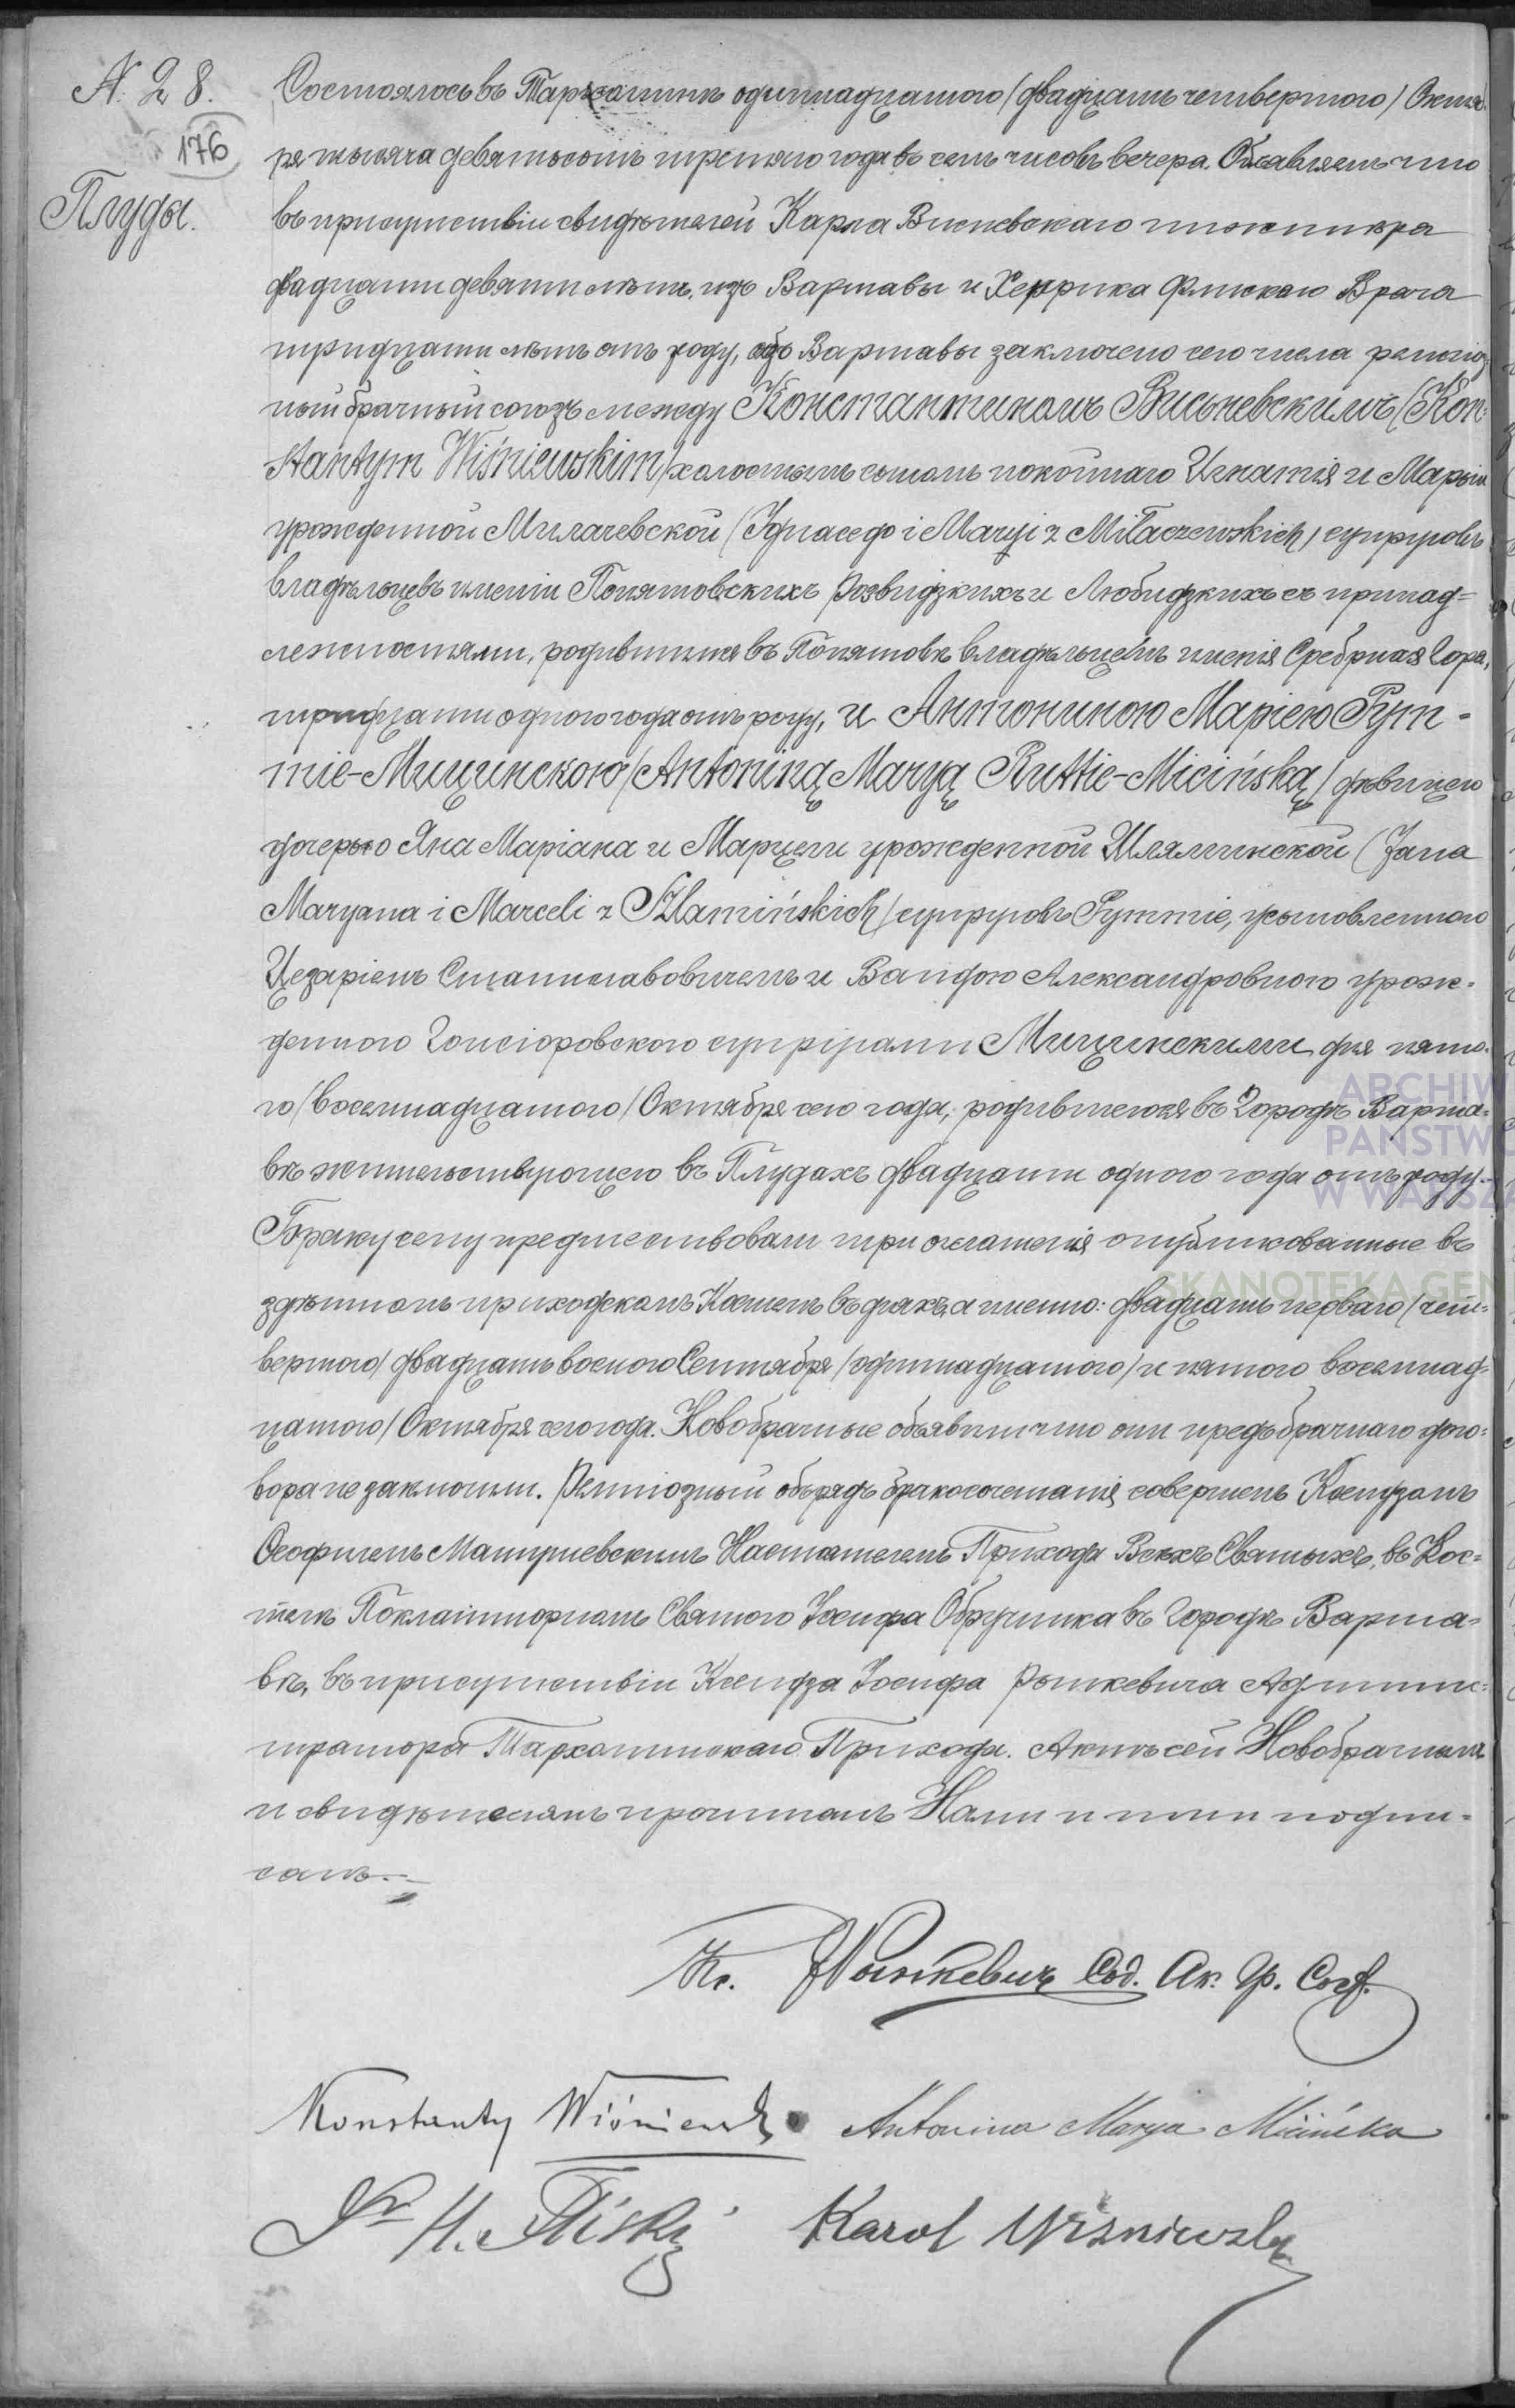 № 28.
176
Плуды.
Состоялось въ Тархоминѣ одиннадцатого /двадцать четвертого/ Октяб
ря тысяча девятьсотъ третяго года въ семь часовъ вечера. Объявляемъ что
въ присутствіи свидѣтелей Карла Висневскаго инженера
двадцати девяти лѣтъ, изъ Варшавы и Хенрика Флискаго Врача
тридцати лѣтъ отъ роду, изъ Варшавы заключено сего числа религіоз
ный брачный союзъ между Константиномъ Висьневскимъ /Kon=
stantym Wiśniewskim/ холостымъ сыномъ покойнаго Игнатія и Марыи
урожденной Милачевской (Ignacego i Maryi z Miłaczewskich) супруговъ
владѣльцевъ имѣній Понятовскихъ Розвидзкихъ и Любидзкихъ съ принад=
лежностями, родившимся въ Понятовѣ владѣльцемъ имѣнія Сребрная Гора,
тридцати одного года отъ роду, и Антониною Маріею Рут-
тіе-Мицинскою /Antoniną Maryą Ruttie-Micińską/ дѣвицею
дочерью Яна Маріана и Марцели урожденной Шляминской (Jana
Maryana i Marceli z Szlamińskich) супруговъ Руттіе, усыновленною
Цезаріемъ Станиславовичемъ и Вандою Александровною урож-
денною Гонсіоровскою супругами Мицинскими дня пято-
го /восемнадцатого/ Октября сего года, родившеюся въ Городѣ Варша=
вѣ жительствующею въ Плудахъ двадцати одного года отъ роду.-
Браку сему предшествовали три оглашенія опубликованные въ
здѣшномъ приходскомъ Костелѣ въ дняхъ, а именно: двадцать перваго /чет=
вертого/ двадцать восмого Сентября /одиннадцатого/ и пятого восемнад=
цатого/ Октября сего года. Новобрачные объявили что они предъбрачнаго дого=
вора не заключили. Религіозный обрядъ бракосочетанія совершенъ Ксендзомъ
Ѳеофилемъ Матушевскимъ Настоятелемъ Прихода Всѣхъ Святыхъ, въ Кос=
телѣ Поклашторномъ Святого Іосифа Обручника въ Городѣ Варша=
вѣ, въ присутствіи Ксендза Іосифа Рышкевича Админис=
тратора Тархоминскаго Прихода. Актъ сей Новобрачнымъ
и свидѣтелямъ прочитанъ Нами и ними подпи=
санъ.-
Кс. Рышкевичъ Сод. Ак. Гр. Сост.
Konstanty Wiśniewski Antonina Marya Micińska
Dr H. Fliski Karol Wiśniewski
ARCHIW
PAŃSTW
W WARSZA
SKANOTEKA.GEN